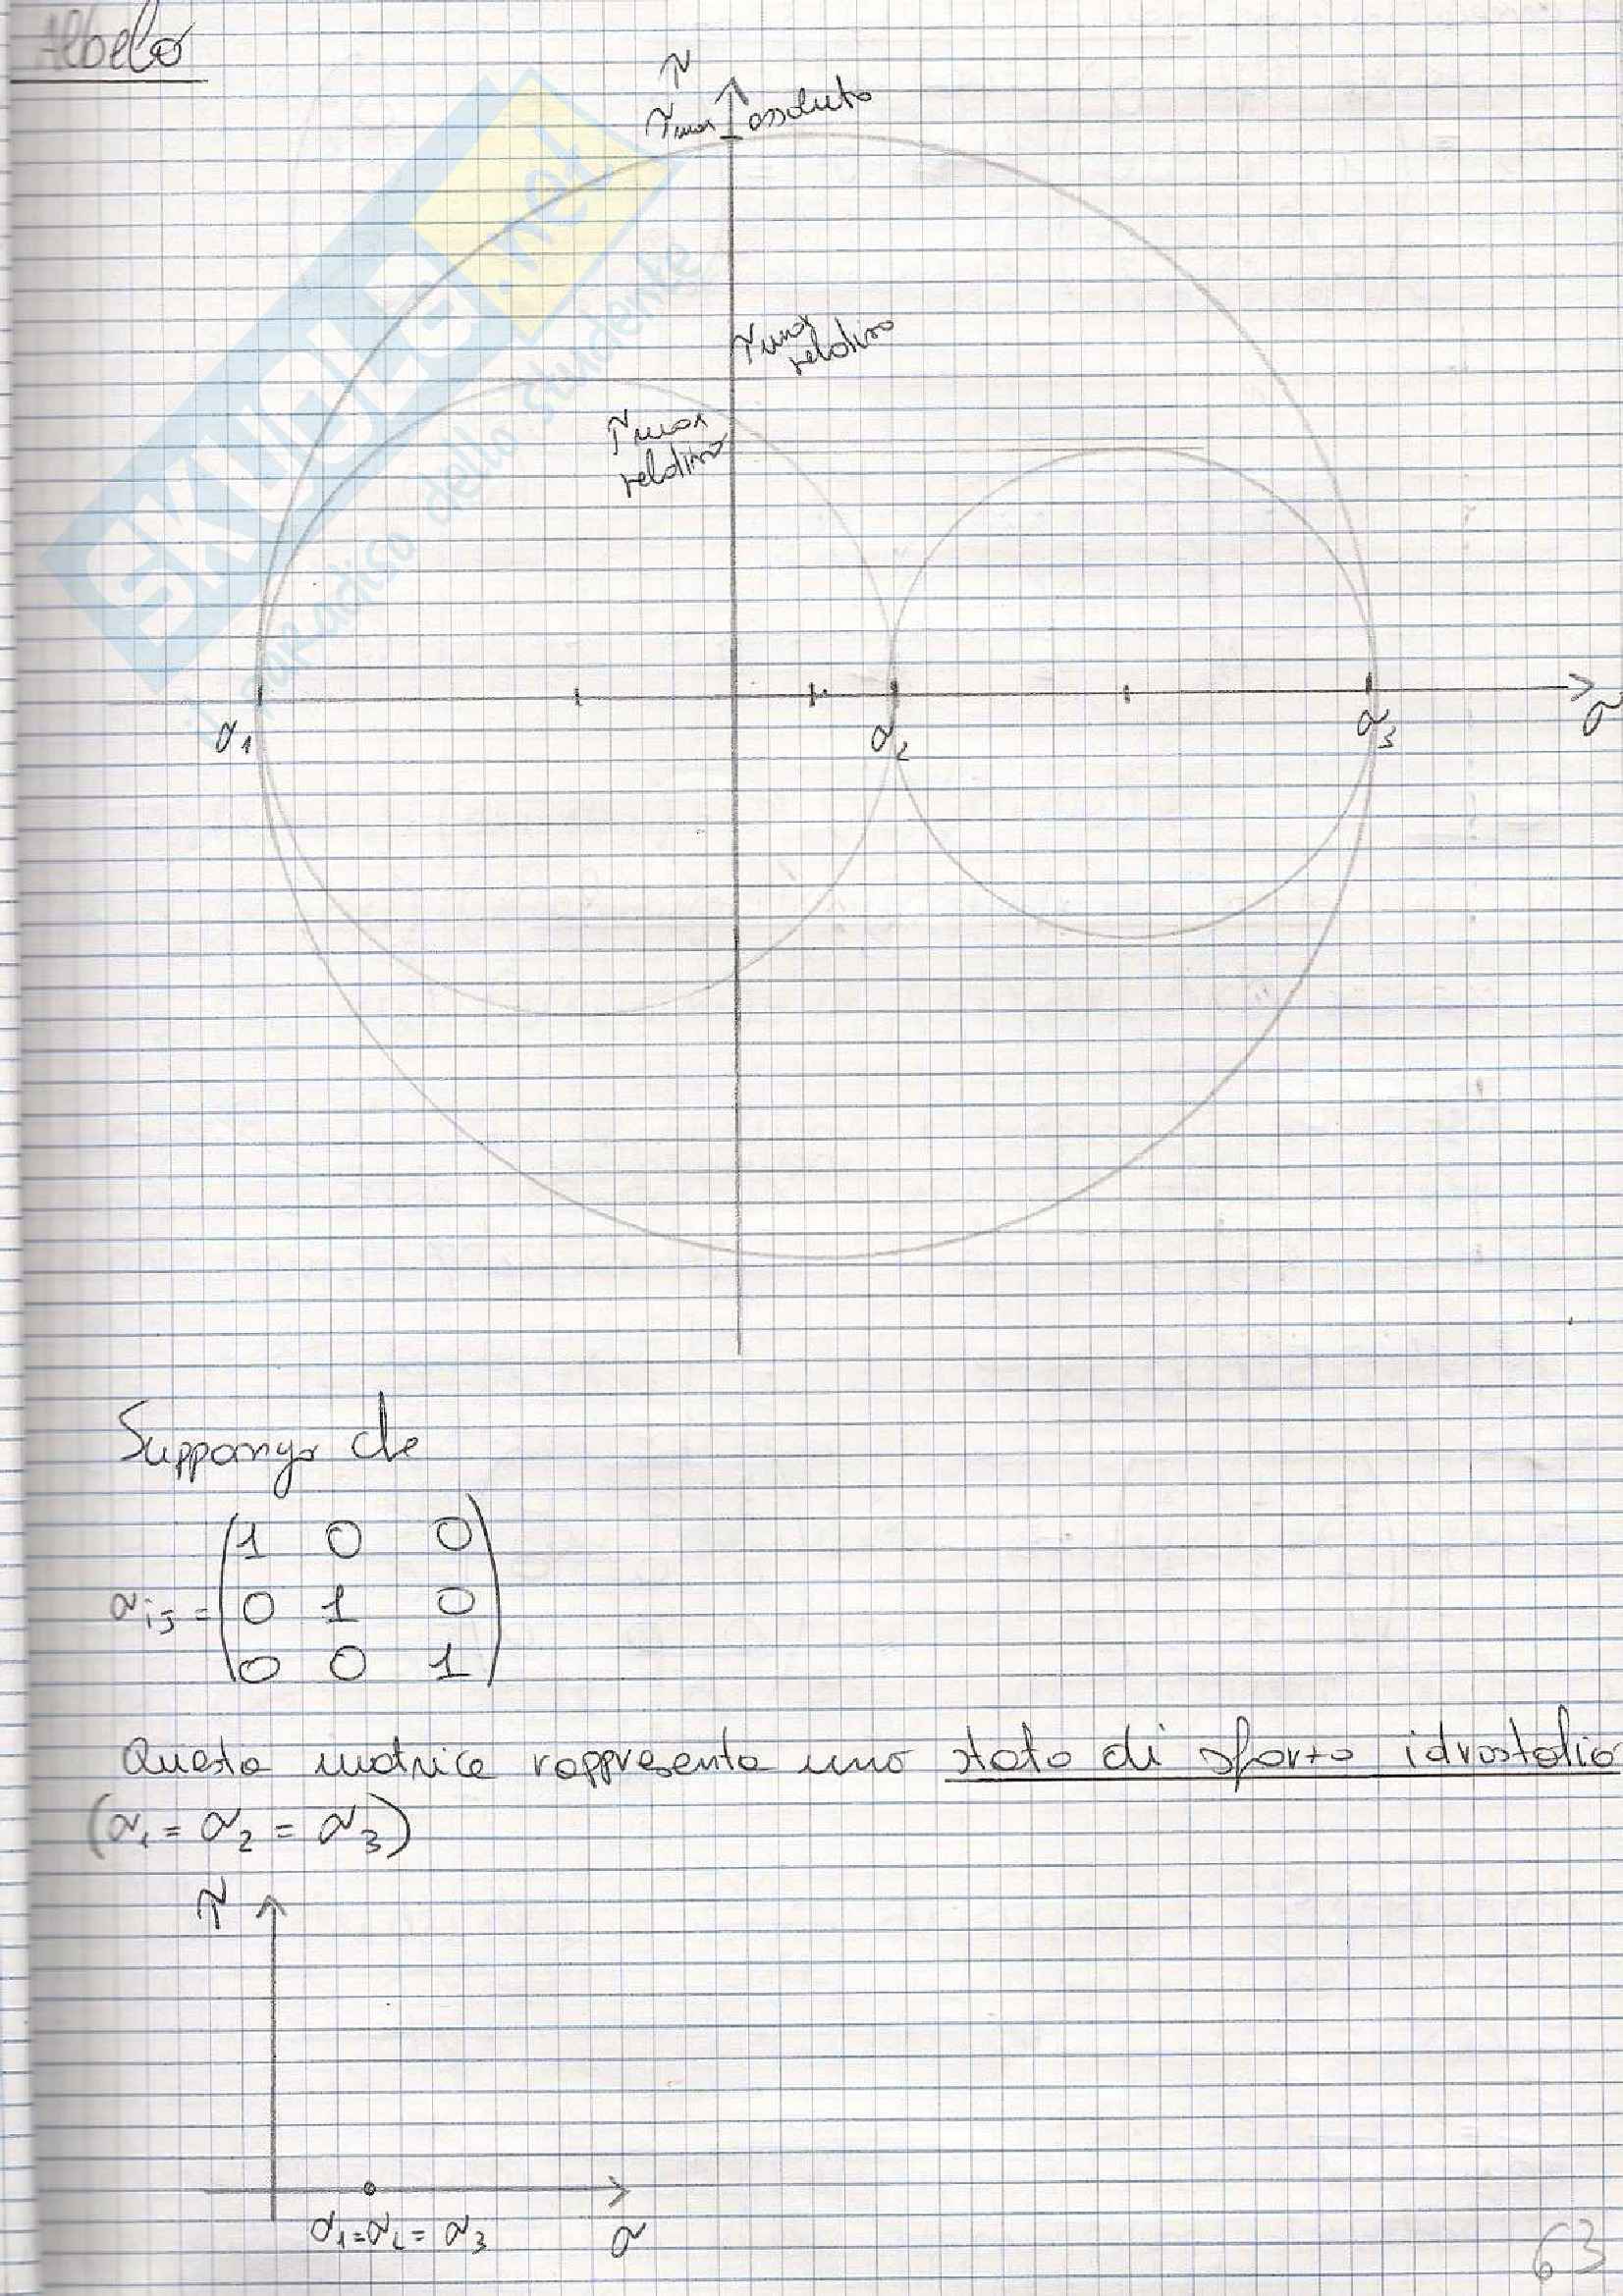 Arbelo
τ
τmax assoluto
τmax
relativo
τmax
relativo
σ1 σ2 σ3 σ
SKUOLA.net
il paradiso dello studente
Suppongo che
σij = (1 0 0
0 1 0
0 0 1)
Questa matrice rappresenta uno stato di sforzo idrostatico
(σ1 = σ2 = σ3)
τ
σ1=σ2=σ3 σ
63